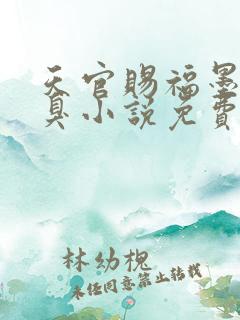 天官賜福墨
臭小説免費
林幼槐
未经同意禁止转载